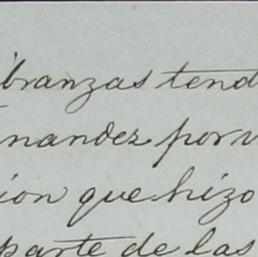 ibranzas tend
nandez por v
ion que hizo
parte de las